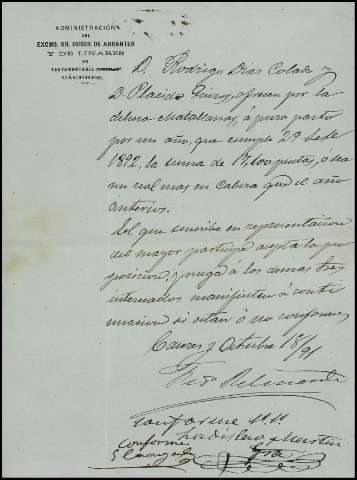 ADMINISTRACIÓN
DEL
EXCMO. SR. DUQUE DE ABRANTES
Y DE LINARES
EN
TESTAMENTARIA
CÁCERES.
D. Rodrigo Diaz Colado y
D. Placido ofrecen por la
dehesa Matallanas, á puro pasto
por un año, que cumple 29 Sete
1892, la suma de 17,100 pesetas, ó sea
un real mas en Cabeza que el año
anterior.
El que suscribe en representacion
del mayor participe acepta la pro
posicion, y ruega á los demas tres
interesados manifiesten á conti
nuacion si están ó no conformes
Caceres y Octubre 18/91
Conforme
Ladislao Martin
Conforme